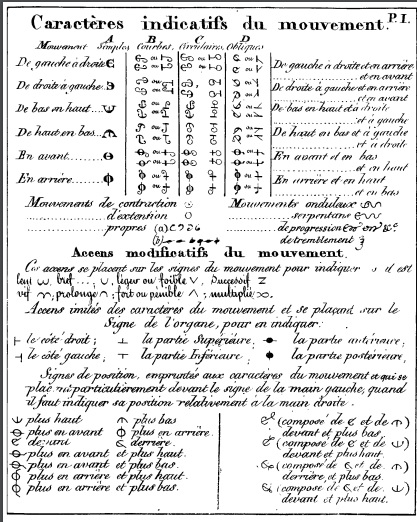 Caractères indicatifs du mouvement.
P. I.
Mouvement A Simples B Courbes, C Circulaires D Obliques
De gauche à droite
De gauche à droite et en arrière
et en avant
De droite à gauche
De droite à gauche et en arrière
et en avant
De bas en haut
De bas en haut et à droite
et à gauche
De haut en bas
De haut en bas et à gauche
et à droite
En avant
En avant et en bas
et en haut
En arrière
En arrière et en haut
et en bas
Mouvements de contraction
Mouvements onduleux
d'extension
serpentans
propres (a)
de progression
(b)
de tremblement
Accens modificatifs du mouvement.
Ces accens se placent sur les signes du mouvement pour indiquer s'il est
lent, bref, léger ou foible, successif
vif, prolongé; fort ou pénible, multiplié
Accens imités des caractères du mouvement et se plaçant sur le
Signe de l'organe, pour en indiquer.
le côté droit; la partie Supérieure, la partie antérieure,
le côté gauche; la partie Inférieure, la partie postérieure,
Signes de position, empruntés aux caractères du mouvement et qui se
placent particulièrement devant le signe de la main gauche, quand
il faut indiquer sa position relativement à la main droite.
plus haut
plus bas
plus en avant
plus en arrière
devant
derrière
plus en avant et plus haut.
plus en avant et plus bas.
plus en arrière et plus haut
plus en arrière et plus bas.
(composé de et de)
devant et plus bas.
(composé de et de)
devant et plus haut.
(composé de et de)
derrière, et plus bas.
(composé de et de)
devant et plus haut.